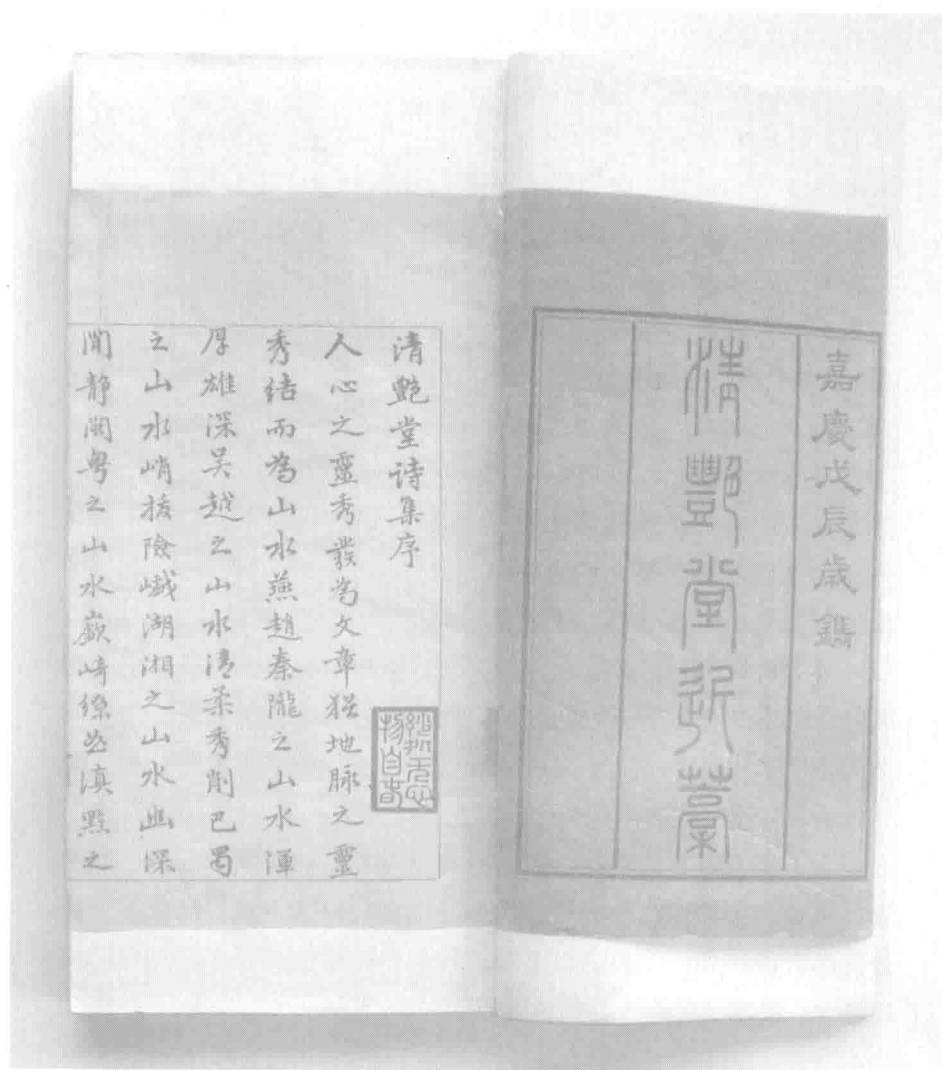 嘉慶戊辰歲鐫
清豔堂近藁
清艶堂诗集序
人心之靈秀發為文章猶地脉之靈
秀结而為山水燕趙秦隴之山水渾
厚雄深吴越之山水清柔秀削巴蜀
之山水峭拔險巇湖湘之山水幽深
閒静閩粤之山水嶔崎繚曲滇黔之